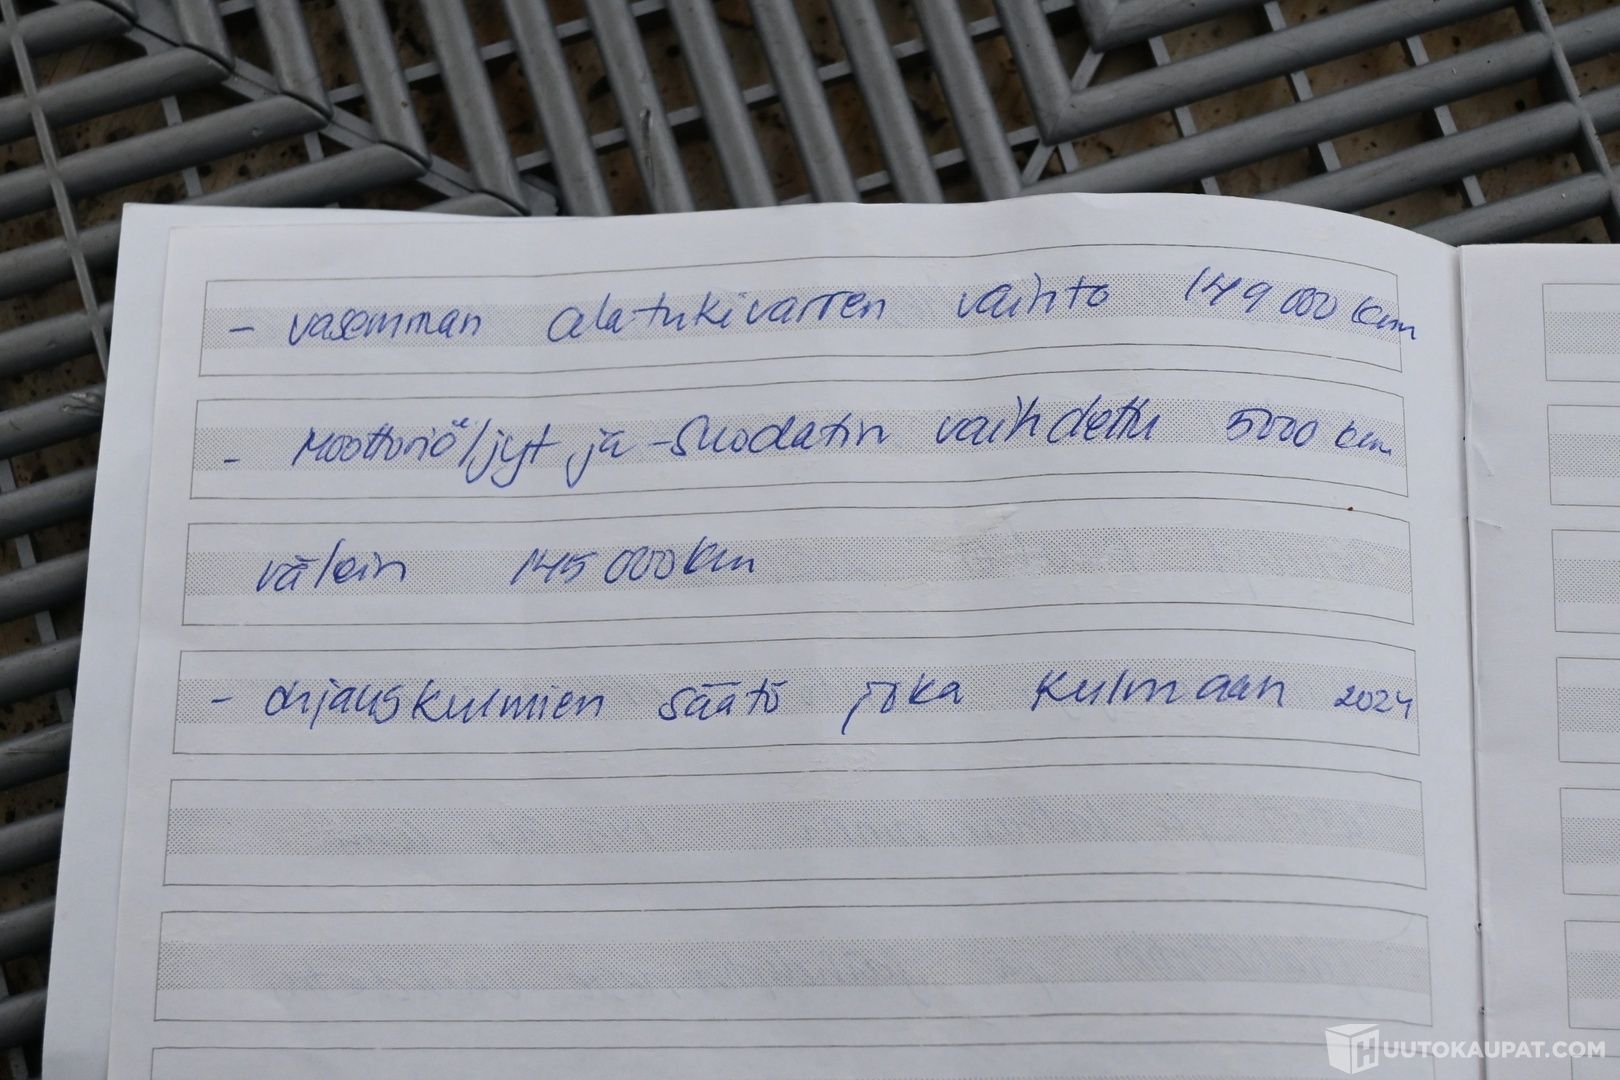 - vasemman alatukivarren vaihto 149 000 km
- Moottoriöljyt ja -suodatin vaihdettu 5000 km
välein 145 000 km
- ohjauskulmien säätö joka kulmaan 2024
HUUTOKAUPAT.COM